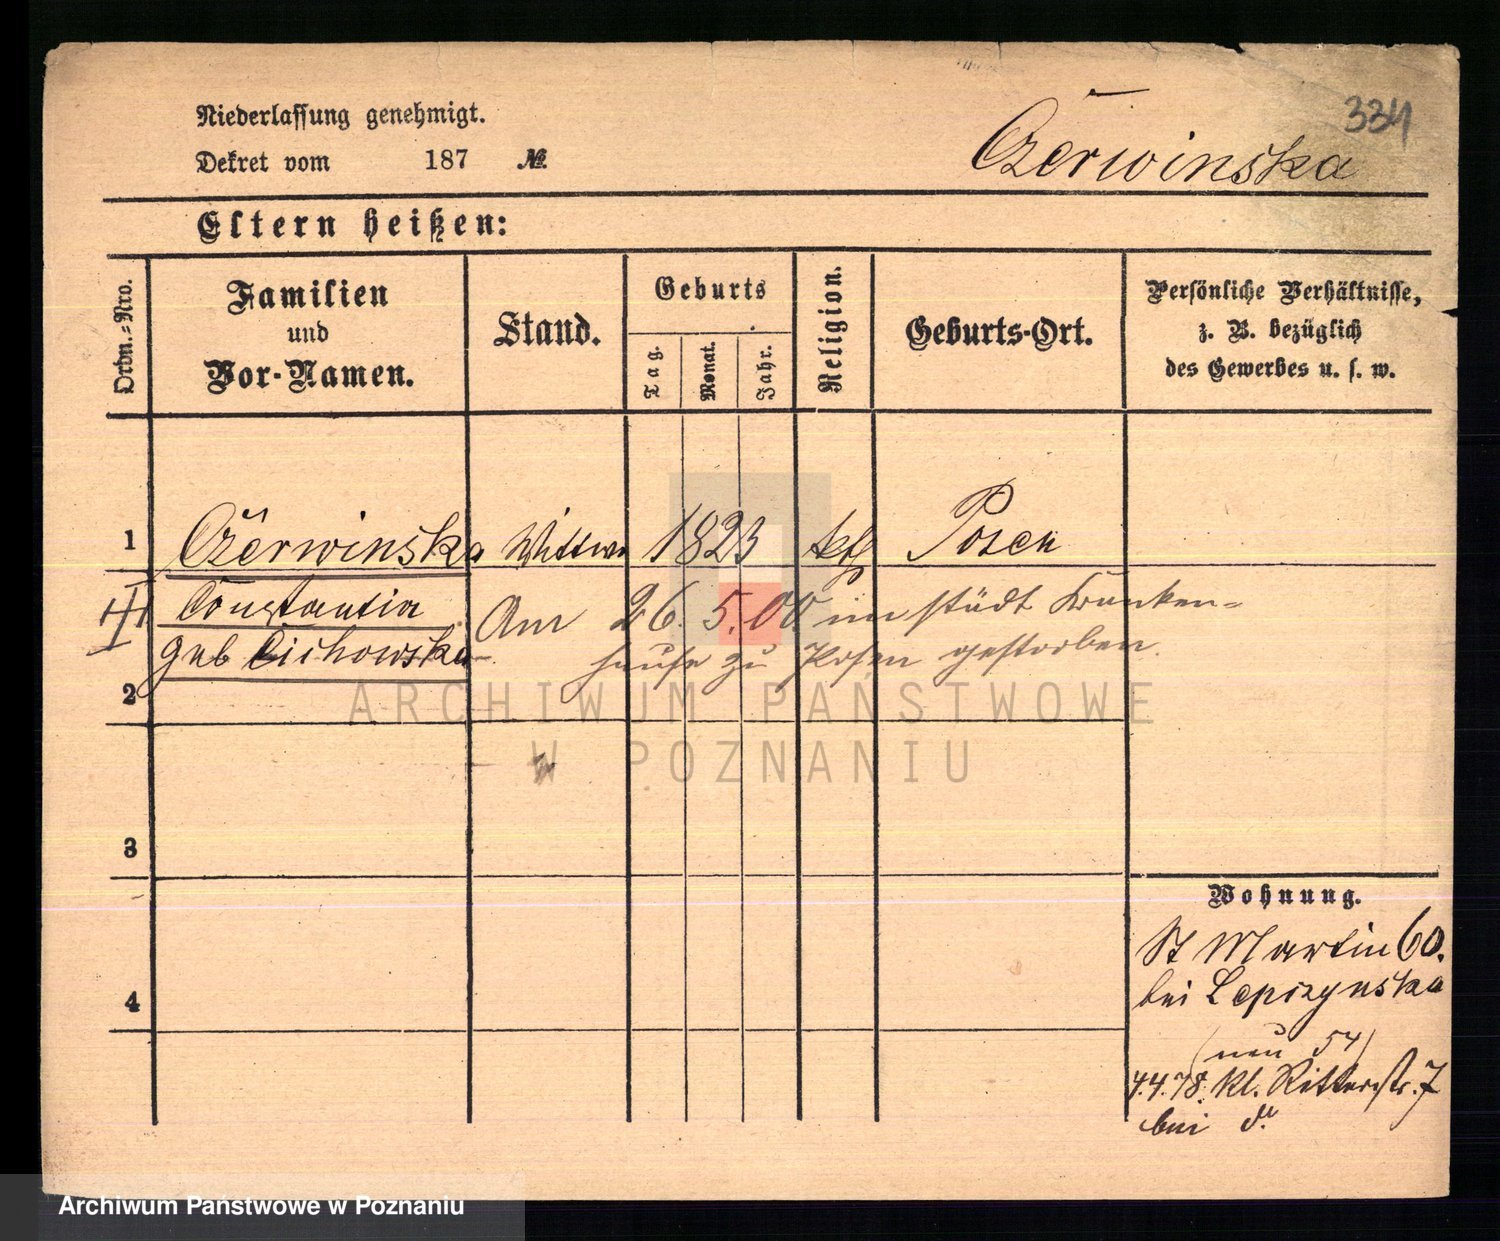 334
Niederlassung genehmigt.
Dekret vom 187 №
Czerwinska
Eltern heißen:
Ordn.=Nro.
Familien
und
Vor-Namen.
Stand.
Geburts
Tag.
Monat.
Jahr.
Religion.
Geburts-Ort.
Persönliche Verhältnisse,
z. B. bezüglich
des Gewerbes u. s. w.
1 Czerwinska Wittwe 1823 kth Posen
Constantia
geb Cichowska
Am 26. 5. 00. im städt Kranken-
hause zu Posen gestorben.
2
ARCHIWUM PAŃSTWOWE
W POZNANIU
3
Wohnung.
St Martin 60.
bei Lepszynska
4
(neu 54)
4.4.78. Kl. Ritterstr. 7
bei
Archiwum Państwowe w Poznaniu